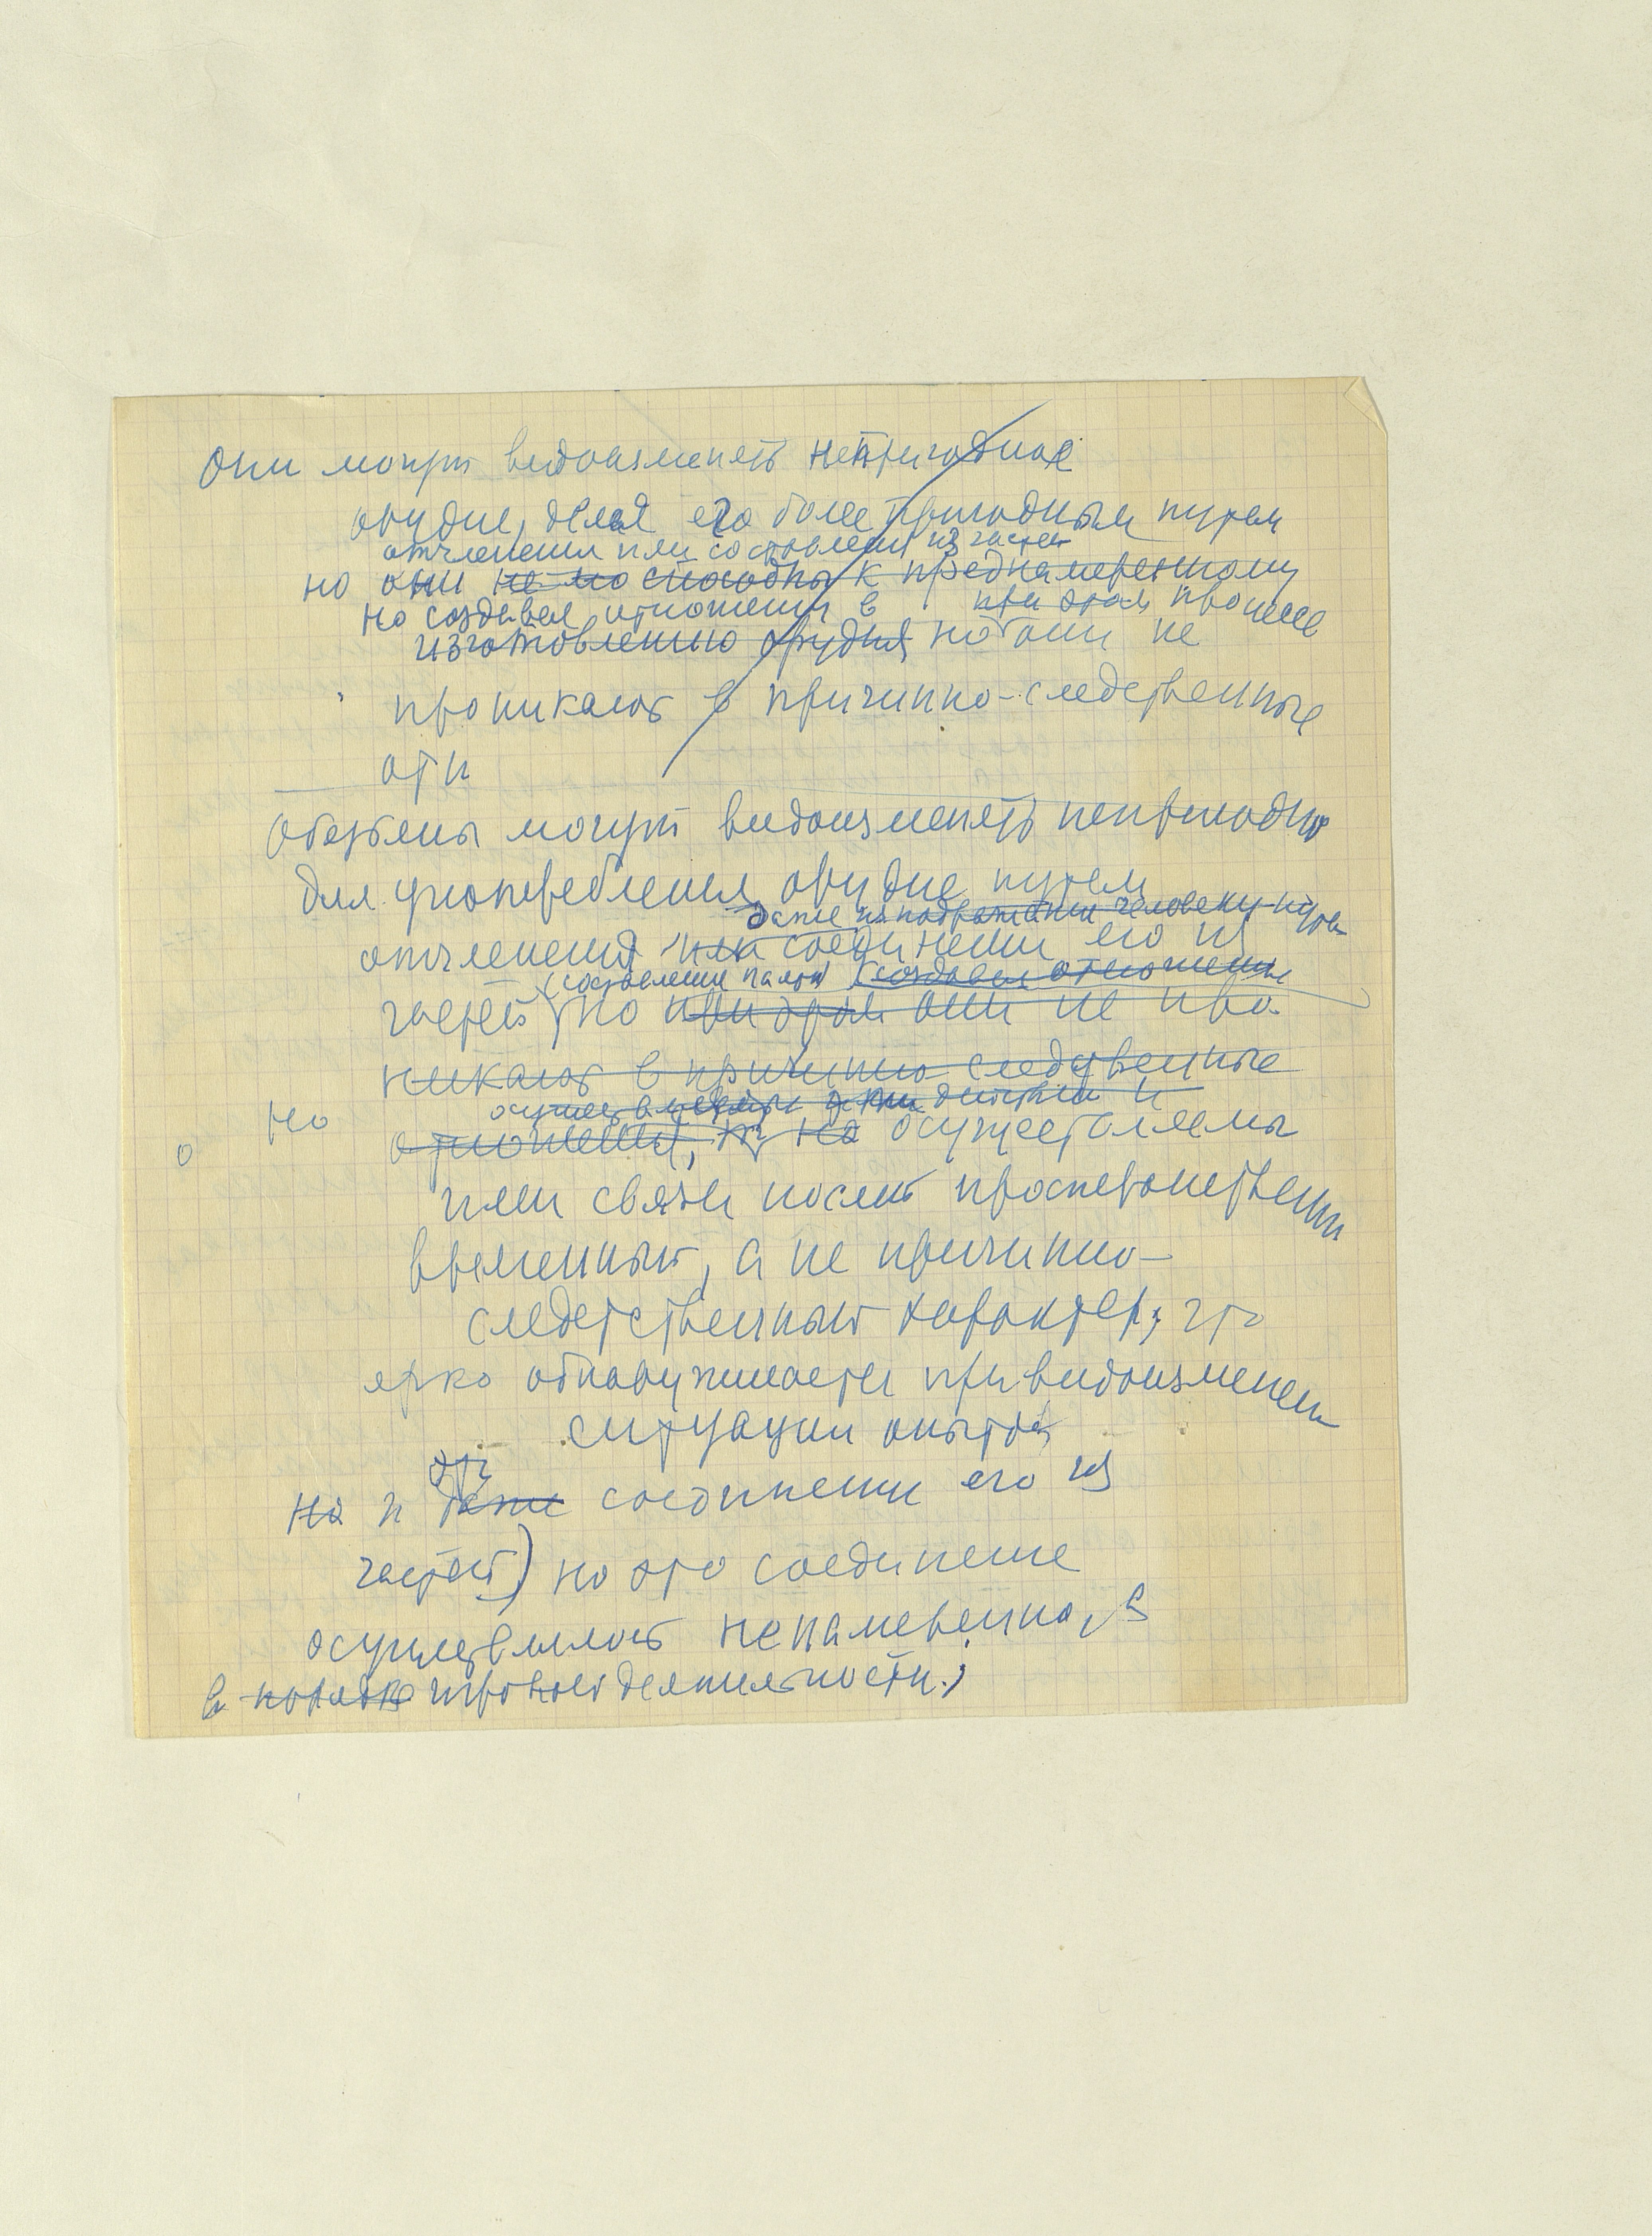 Они могут видоизменять непригодное
орудие, делая его более пригодным путем
отчленения или составления из частей
но они не мо способны к преднамеренному
но создавая отношения в при этом процессе
изготовлению орудия но они не
проникают в причинно-следственные
отн
Обезьяны могут видоизменять непригодное
для употребления орудие путем
даже по подражанию человеку путем
отчленения или соединения его из
(составление палок) (создавая отношения
частей) но при этом они не про
никают в причинно следственные
осуществляемые ими действия и
но отношения, но осуществляемые
о
ими связи носят пространственно
временный, а не причинно-
следственный характер; что
ярко обнаруживается при видоизменении
ситуации опытов
эти
на и даже соединении его из
частей) но это соединение
осуществлялось ненамеренно, а
в порядке игровой деятельности;